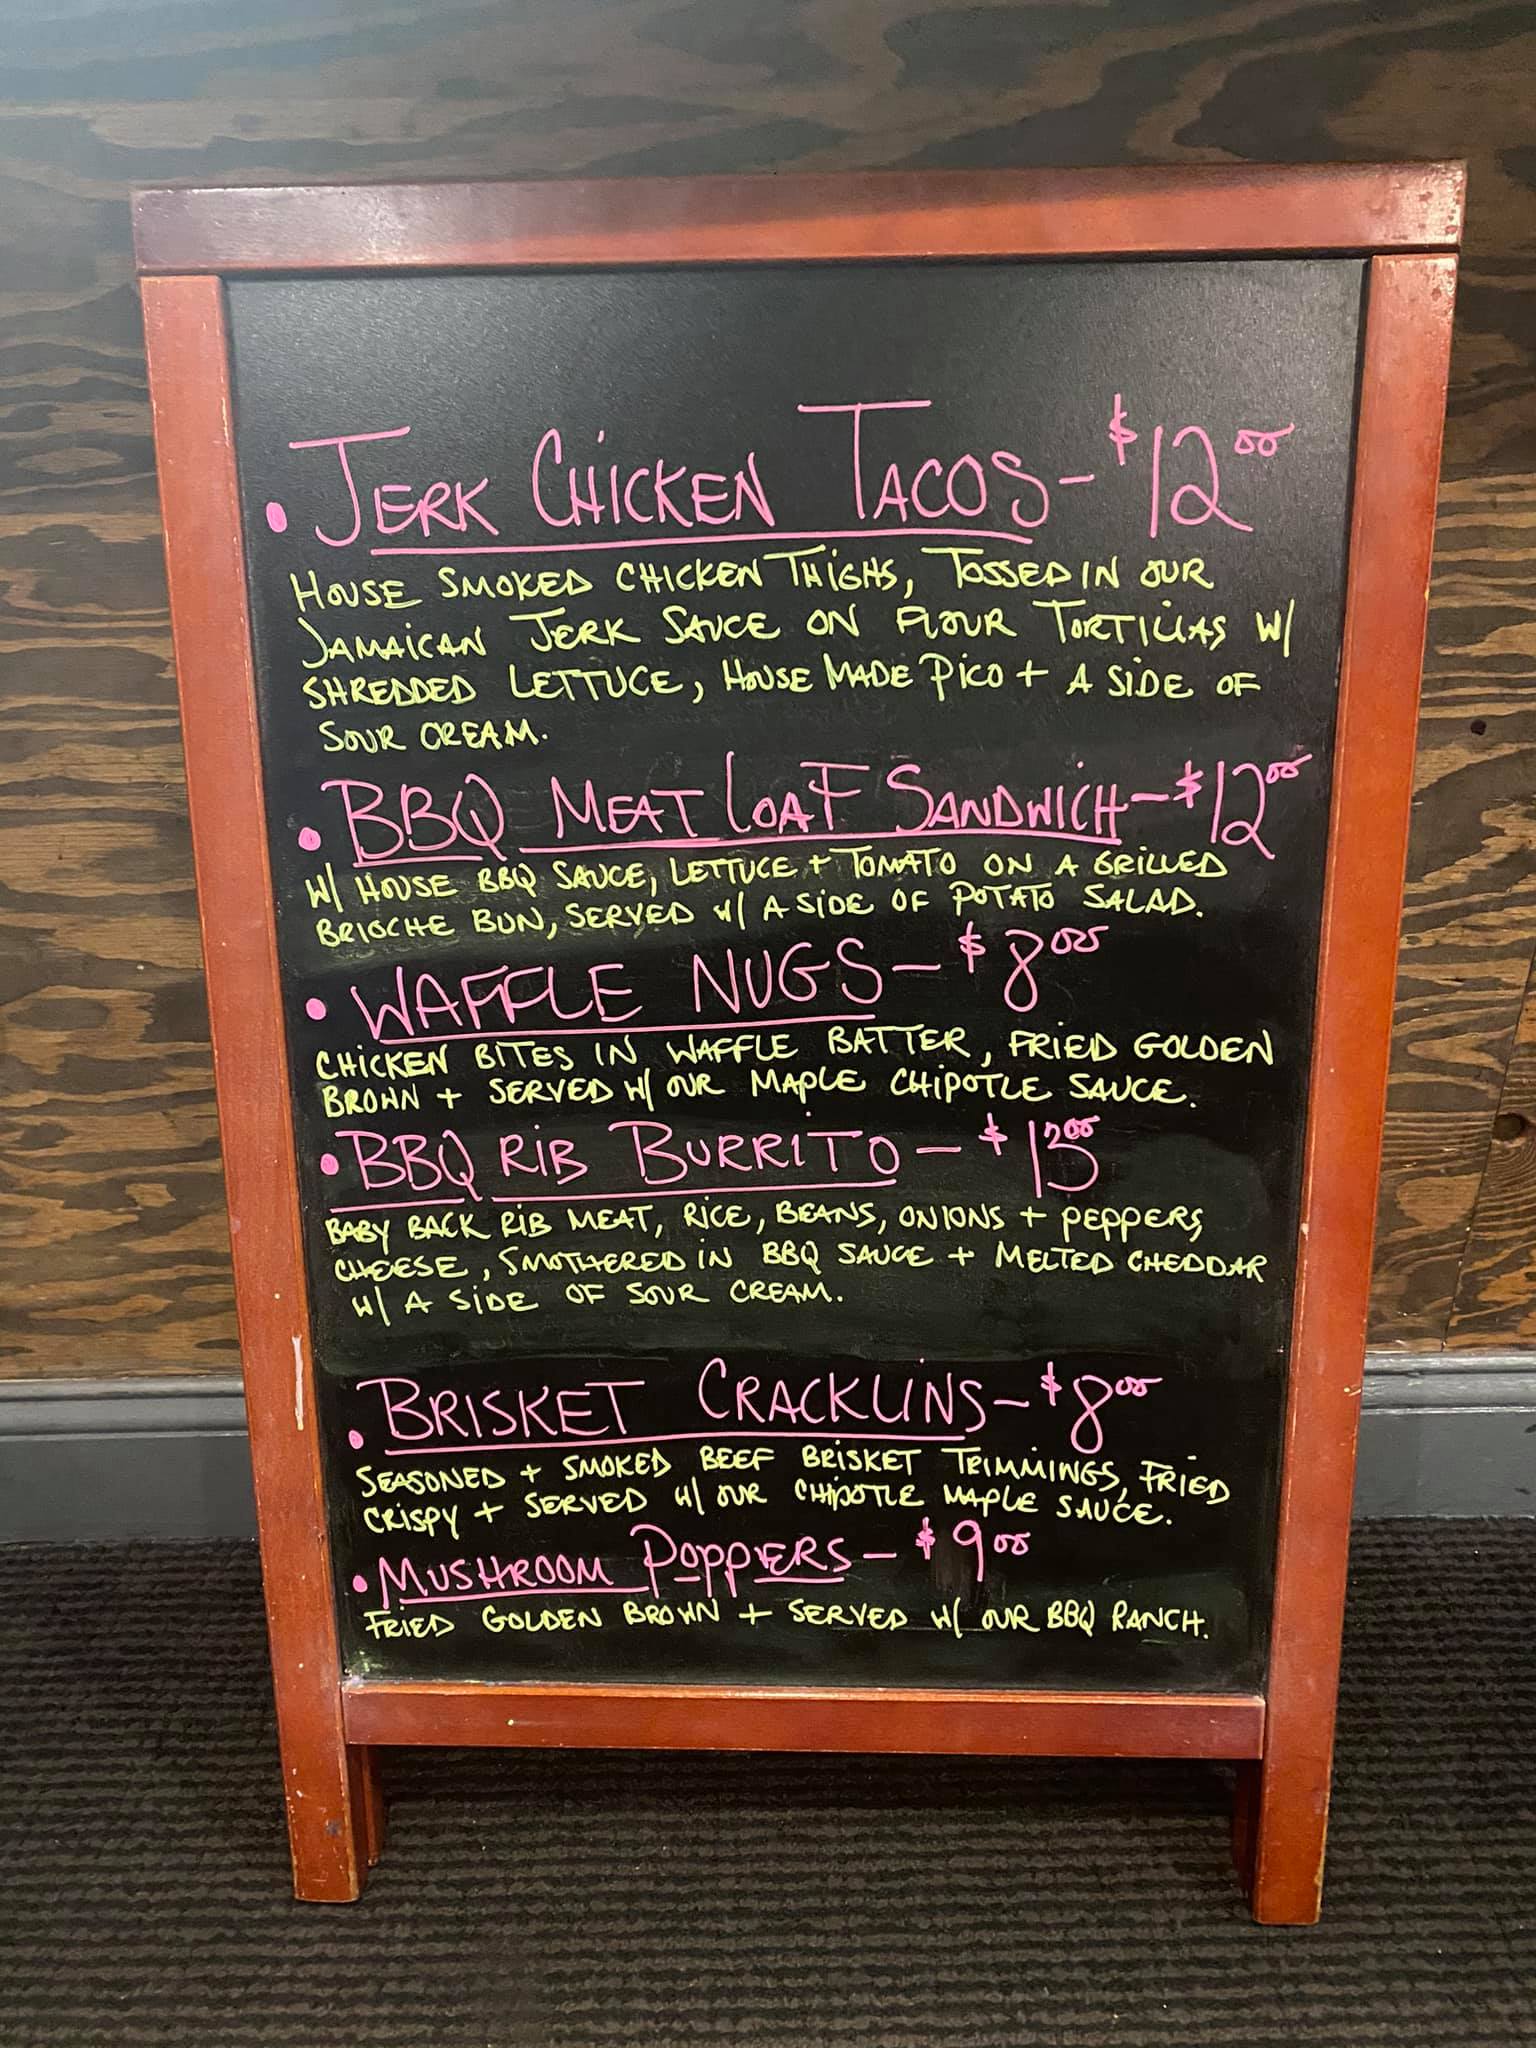 • JERK CHICKEN TACOS - $12.00
HOUSE SMOKED CHICKEN THIGHS, TOSSED IN OUR
JAMAICAN JERK SAUCE ON FLOUR TORTILLAS W/
SHREDDED LETTUCE, HOUSE MADE PICO + A SIDE OF
SOUR CREAM.
• BBQ MEAT LOAF SANDWICH - $12.00
W/ HOUSE BBQ SAUCE, LETTUCE + TOMATO ON A GRILLED
BRIOCHE BUN, SERVED W/ A SIDE OF POTATO SALAD.
• WAFFLE NUGS - $8.00
CHICKEN BITES IN WAFFLE BATTER, FRIED GOLDEN
BROWN + SERVED W/ OUR MAPLE CHIPOTLE SAUCE.
• BBQ RIB BURRITO -
BABY BACK RIB MEAT, RICE, BEANS, ONIONS + PEPPERS,
CHEESE, SMOTHERED IN BBQ SAUCE + MELTED CHEDDAR
W/ A SIDE OF SOUR CREAM.
• BRISKET CRACKLINS - $8.00
SEASONED + SMOKED BEEF BRISKET TRIMMINGS, FRIED
CRISPY + SERVED W/ OUR CHIPOTLE MAPLE SAUCE.
• MUSHROOM POPPERS - $9.00
FRIED GOLDEN BROWN + SERVED W/ OUR BBQ RANCH.